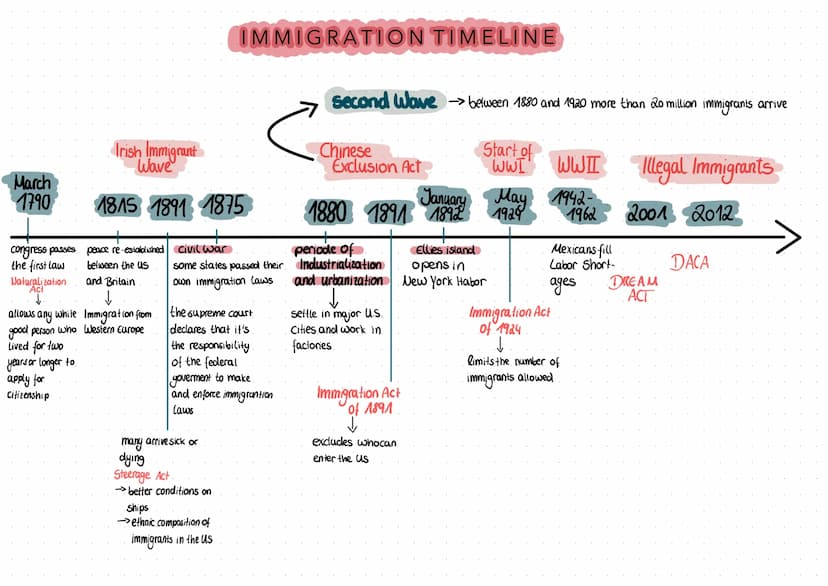 IMMIGRATION TIMELINE
second Wave → between 1880 and 1920 more than 20 million immigrants arrive
Irish Immigrant
Wave
Chinese
Exclusion Act
Start of
WWI
WWII
Illegal Immigrants
March
1790
1815
1891
1875
1880
1891
January
1892
May
1924
1942-
1962
2001
2012
congress passes
the first law
Naturalization
Act
↓
allows any white
good person who
lived for two
years or longer to
apply for
citizenship
peace re-established
between the US
and Britain
↓
Immigration from
Western Europe
Civil War
some states passed their
own immigration laws
the supreme court
declares that it's
the responsibility
of the federal
goverment to make
and enforce immigrantion
laws
many arrive sick or
dying
Steerage Act
→ better conditions on
ships
→ ethnic composition of
immigrants in the US
periode of
Industrialization
and urbanization
↓
settle in major U.S.
Cities and work in
factories
Immigration Act
of 1891
↓
excludes who can
enter the US
Ellies island
opens in
New York Harbor
Immigration Act
of 1924
↓
limits the number of
immigrants allowed
Mexicans fill
Labor Short-
ages
DREAM
ACT
DACA